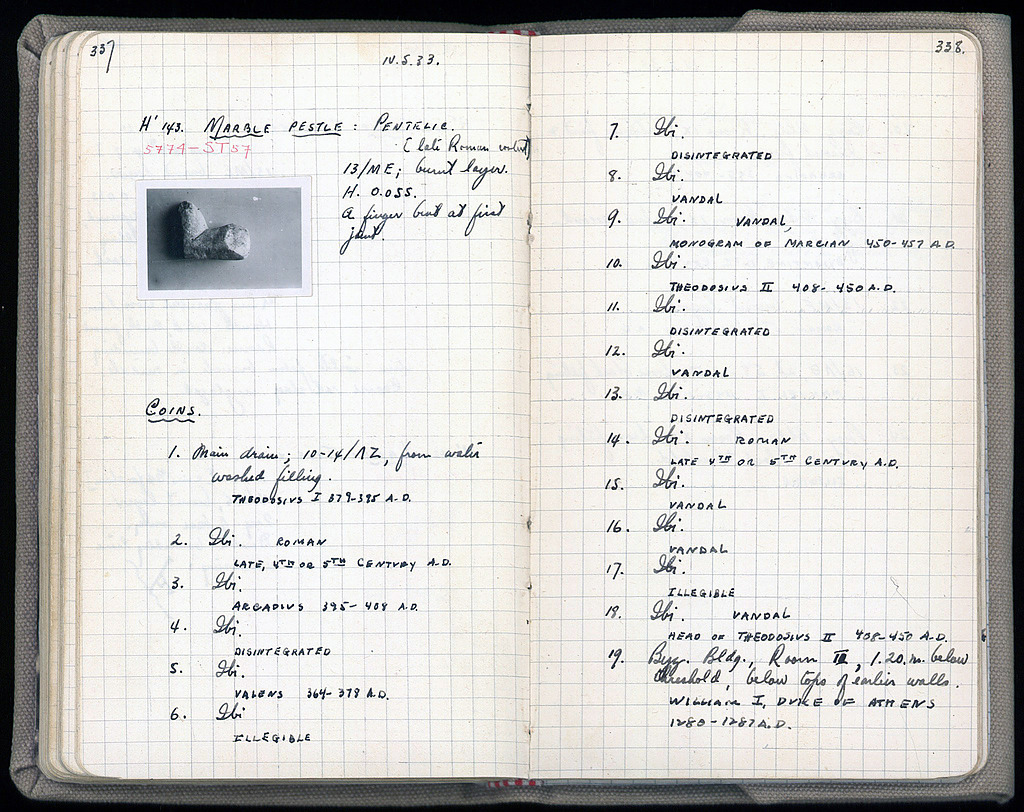 337
IV.5.33.
H' 143. MARBLE PESTLE: PENTELIC.
5774-ST57
(late Roman
13/ME; burnt layer.
H. 0.055.
A finger bent at first
joint.
COINS.
1. Main drain; 10-14/ΛZ, from water
washed filling.
THEODOSIUS I 379-395 A.D.
2. Ibi. ROMAN
LATE, 4TH OR 5TH CENTURY A.D.
3. Ibi.
ARCADIUS 395-408 A.D.
4. Ibi.
DISINTEGRATED
5. Ibi.
VALENS 364-378 A.D.
6. Ibi
ILLEGIBLE
338.
7. Ibi.
DISINTEGRATED
8. Ibi.
VANDAL
9. Ibi. VANDAL,
MONOGRAM OF MARCIAN 450-457 A.D.
10. Ibi.
THEODOSIUS II 408-450 A.D.
11. Ibi.
DISINTEGRATED
12. Ibi.
VANDAL
13. Ibi.
DISINTEGRATED
14. Ibi. ROMAN
LATE 4TH OR 5TH CENTURY A.D.
15. Ibi.
VANDAL
16. Ibi.
VANDAL
17. Ibi.
ILLEGIBLE
18. Ibi. VANDAL
HEAD OF THEODOSIUS II 408-450 A.D.
19. Byz. Bldg., Room III, 1.20.m. below
threshold, below tops of earlier walls.
WILLIAM I, DUKE OF ATHENS
1280-1287 A.D.